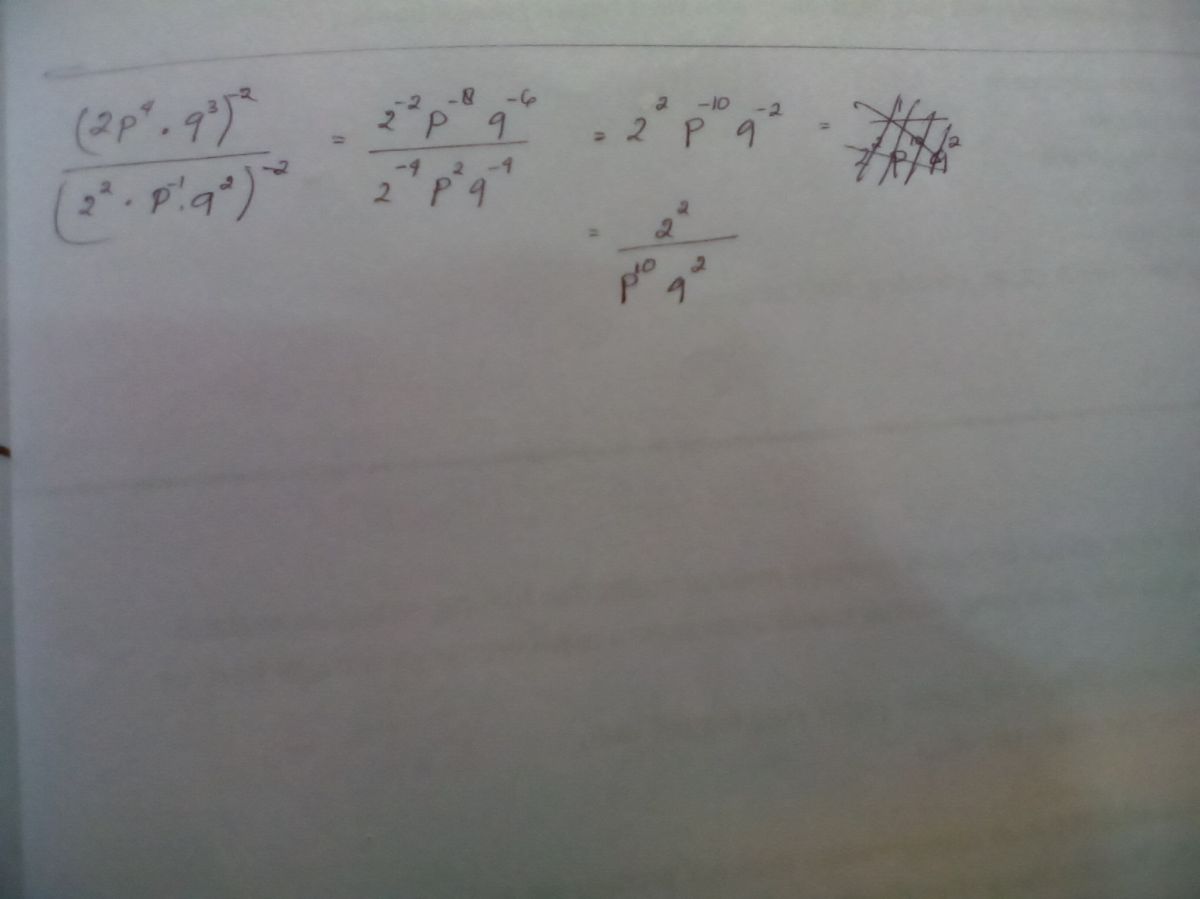 (2p⁴ · q³)⁻² / (2² · p⁻¹ · q²)⁻² = 2⁻² p⁻⁸ q⁻⁶ / 2⁻⁴ p² q⁻⁴ = 2² p⁻¹⁰ q⁻² =
= 2² / p¹⁰ q²